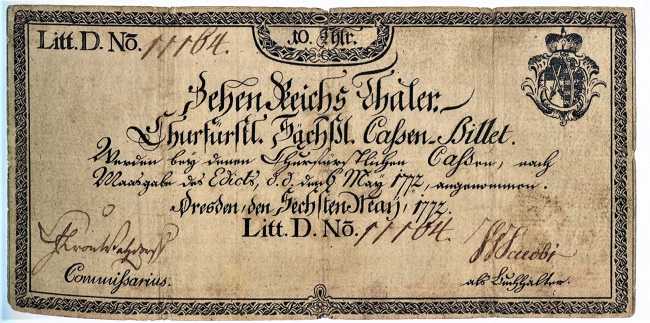 Litt. D. Nō. 11164.
10. Thlr.
Zehen Reichs Thaler.
Churfürstl. Sächßl. Caßen-Billet.
Werden bey denen Churfürstlichen Caßen, nach
Maasgabe des Edicts, d. d. den 6 May 1772, angenommen.
Dresden, den Sechsten May, 1772.
Litt. D. Nō. 11164.
Commißarius.
als Buchhalter.